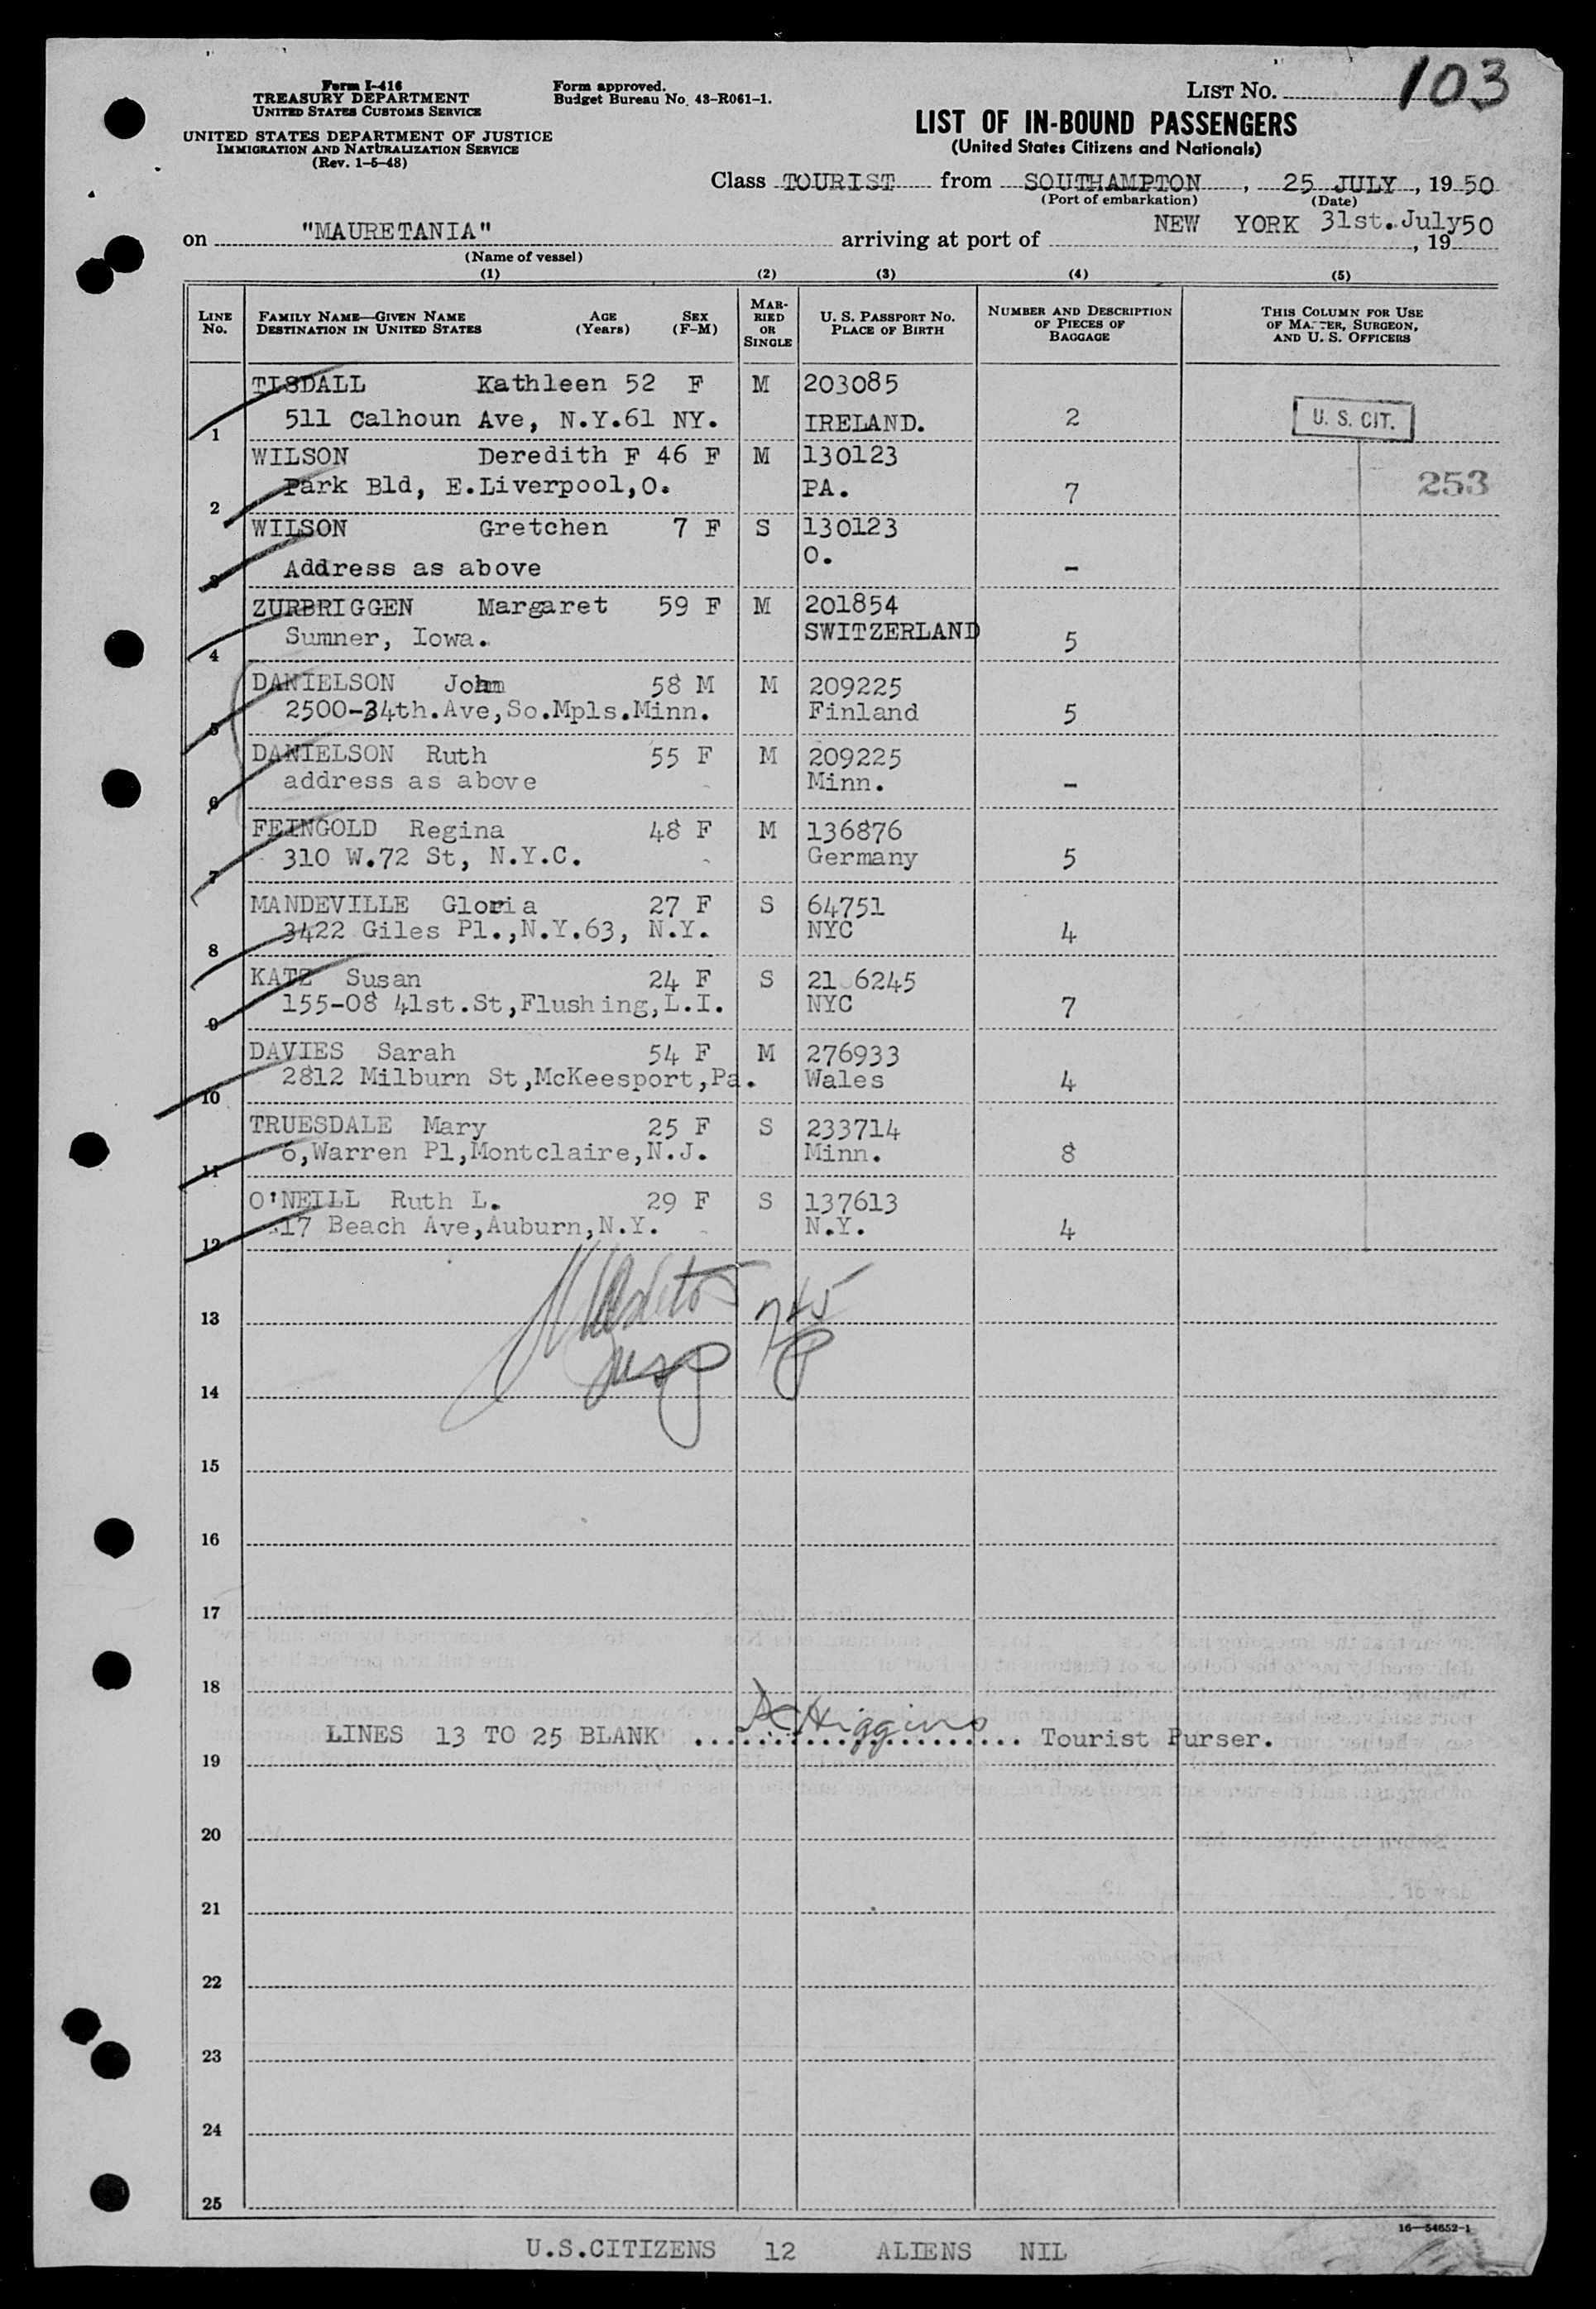 Form I-416
TREASURY DEPARTMENT
UNITED STATES CUSTOMS SERVICE
UNITED STATES DEPARTMENT OF JUSTICE
IMMIGRATION AND NATURALIZATION SERVICE
(Rev. 1-5-48)
Form approved.
Budget Bureau No. 43-R061-1.
LIST NO. 103
LIST OF IN-BOUND PASSENGERS
(United States Citizens and Nationals)
Class TOURIST from SOUTHAMPTON, 25 JULY, 19 50
(Port of embarkation) (Date)
on "MAURETANIA" arriving at port of NEW YORK 31st. July 50, 19
(Name of vessel)
(1) (2) (3) (4) (5)
LINE NO. FAMILY NAME—GIVEN NAME DESTINATION IN UNITED STATES AGE (Years) SEX (F-M) MARRIED OR SINGLE U. S. PASSPORT NO. PLACE OF BIRTH NUMBER AND DESCRIPTION OF PIECES OF BAGGAGE THIS COLUMN FOR USE OF MASTER, SURGEON, AND U. S. OFFICERS
TISDALL Kathleen 52 F M 203085
1 511 Calhoun Ave, N.Y.61 NY. IRELAND. 2 U. S. CIT.
WILSON Deredith F 46 F M 130123
2 Park Bld, E.Liverpool,O. PA. 7 253
WILSON Gretchen 7 F S 130123
3 Address as above O. -
ZURBRIGGEN Margaret 59 F M 201854
4 Sumner, Iowa. SWITZERLAND 5
DANIELSON John 58 M M 209225
5 2500-34th.Ave,So.Mpls.Minn. Finland 5
DANIELSON Ruth 55 F M 209225
6 address as above Minn. -
FEINGOLD Regina 48 F M 136876
7 310 W.72 St, N.Y.C. Germany 5
MANDEVILLE Gloria 27 F S 64751
8 3422 Giles Pl.,N.Y.63, N.Y. NYC 4
KATZ Susan 24 F S 21 6245
9 155-08 41st.St,Flushing,L.I. NYC 7
DAVIES Sarah 54 F M 276933
10 2812 Milburn St,McKeesport,Pa. Wales 4
TRUESDALE Mary 25 F S 233714
11 6,Warren Pl,Montclaire,N.J. Minn. 8
O'NEILL Ruth L. 29 F S 137613
12 17 Beach Ave,Auburn,N.Y. N.Y. 4
13
14
15
16
17
18
LINES 13 TO 25 BLANK ACHiggins Tourist Purser.
19
20
21
22
23
24
25
16—54652-1
U.S.CITIZENS 12 ALIENS NIL